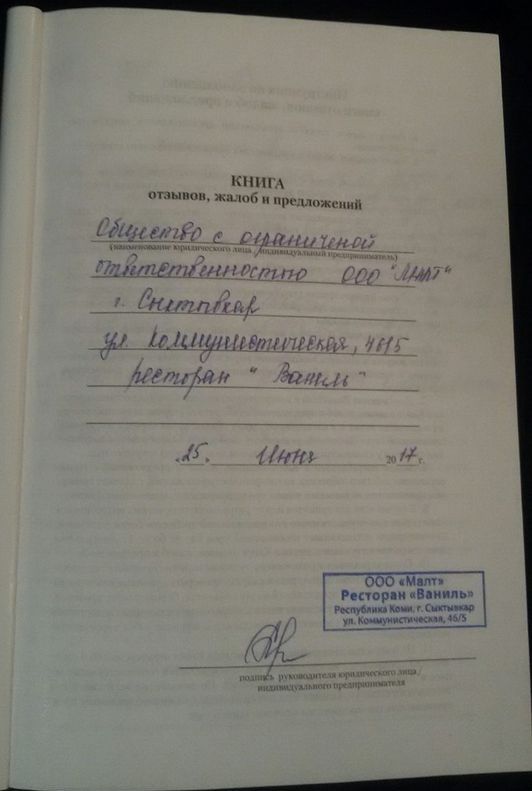 КНИГА
отзывов, жалоб и предложений
Общество с ограниченой
(наименование юридического лица /индивидуальный предприниматель)
ответственностью ООО "Малт"
г. Сыктывкар
ул. Коммунистическая, 46/5
ресторан " Ваниль"
«25» Июня 2017 г.
ООО «Малт»
Ресторан «Ваниль»
Республика Коми, г. Сыктывкар
ул. Коммунистическая, 46/5
подпись руководителя юридического лица /
индивидуального предпринимателя